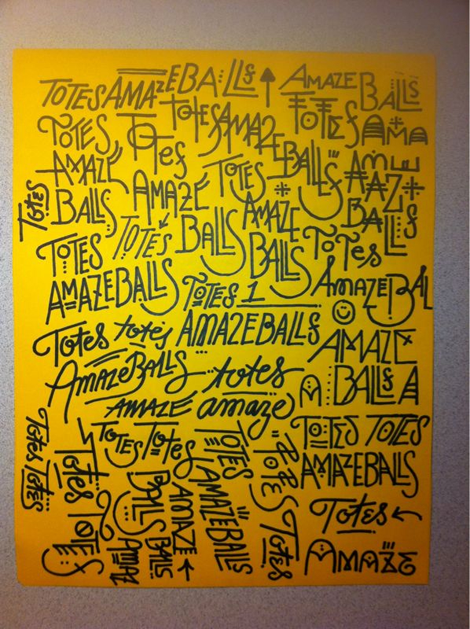 TOTES AMAZEBALLS AMAZE BALLS
TOTES Totes TOTES AMAZEBALLS TOTES AMA
AMAZE AMAZE
BALLS AMAZE TOTES AMAZE BALLS
Totes
TOTES TOTES BALLS BALLS ToTes
AMAZEBALLS TOTES 1 AMAZEBAL
Totes totes AMAZEBALLS AMAZE
AMAZEBALLS totes BALLS A
AMAZE amaze
Totes Totes
TOTES Totes TOTES TOTES TOTES TOTES
Totes AMAZEBALLS AMAZEBALLS
TOTES BALLS AMAZE Totes Totes
AMAZE BALLS AMAZE